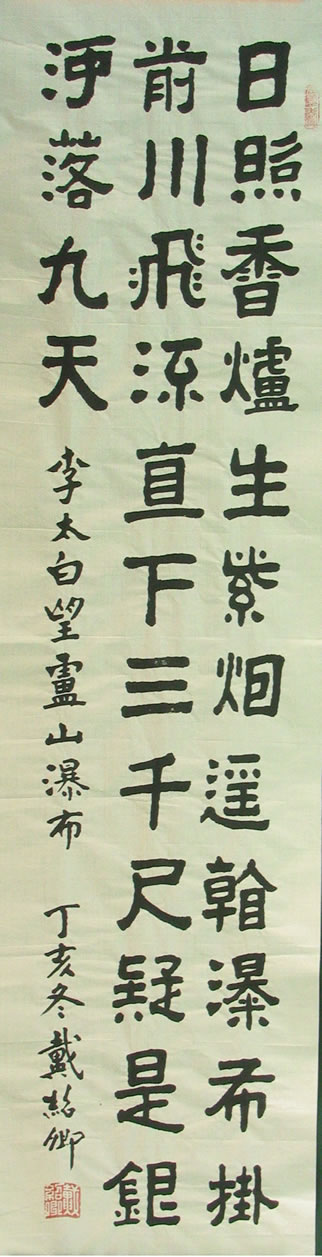 日照香爐生紫烟遥看瀑布掛
前川飛流直下三千尺疑是銀
河落九天
李太白望盧山瀑布 丁亥冬戴紹卿